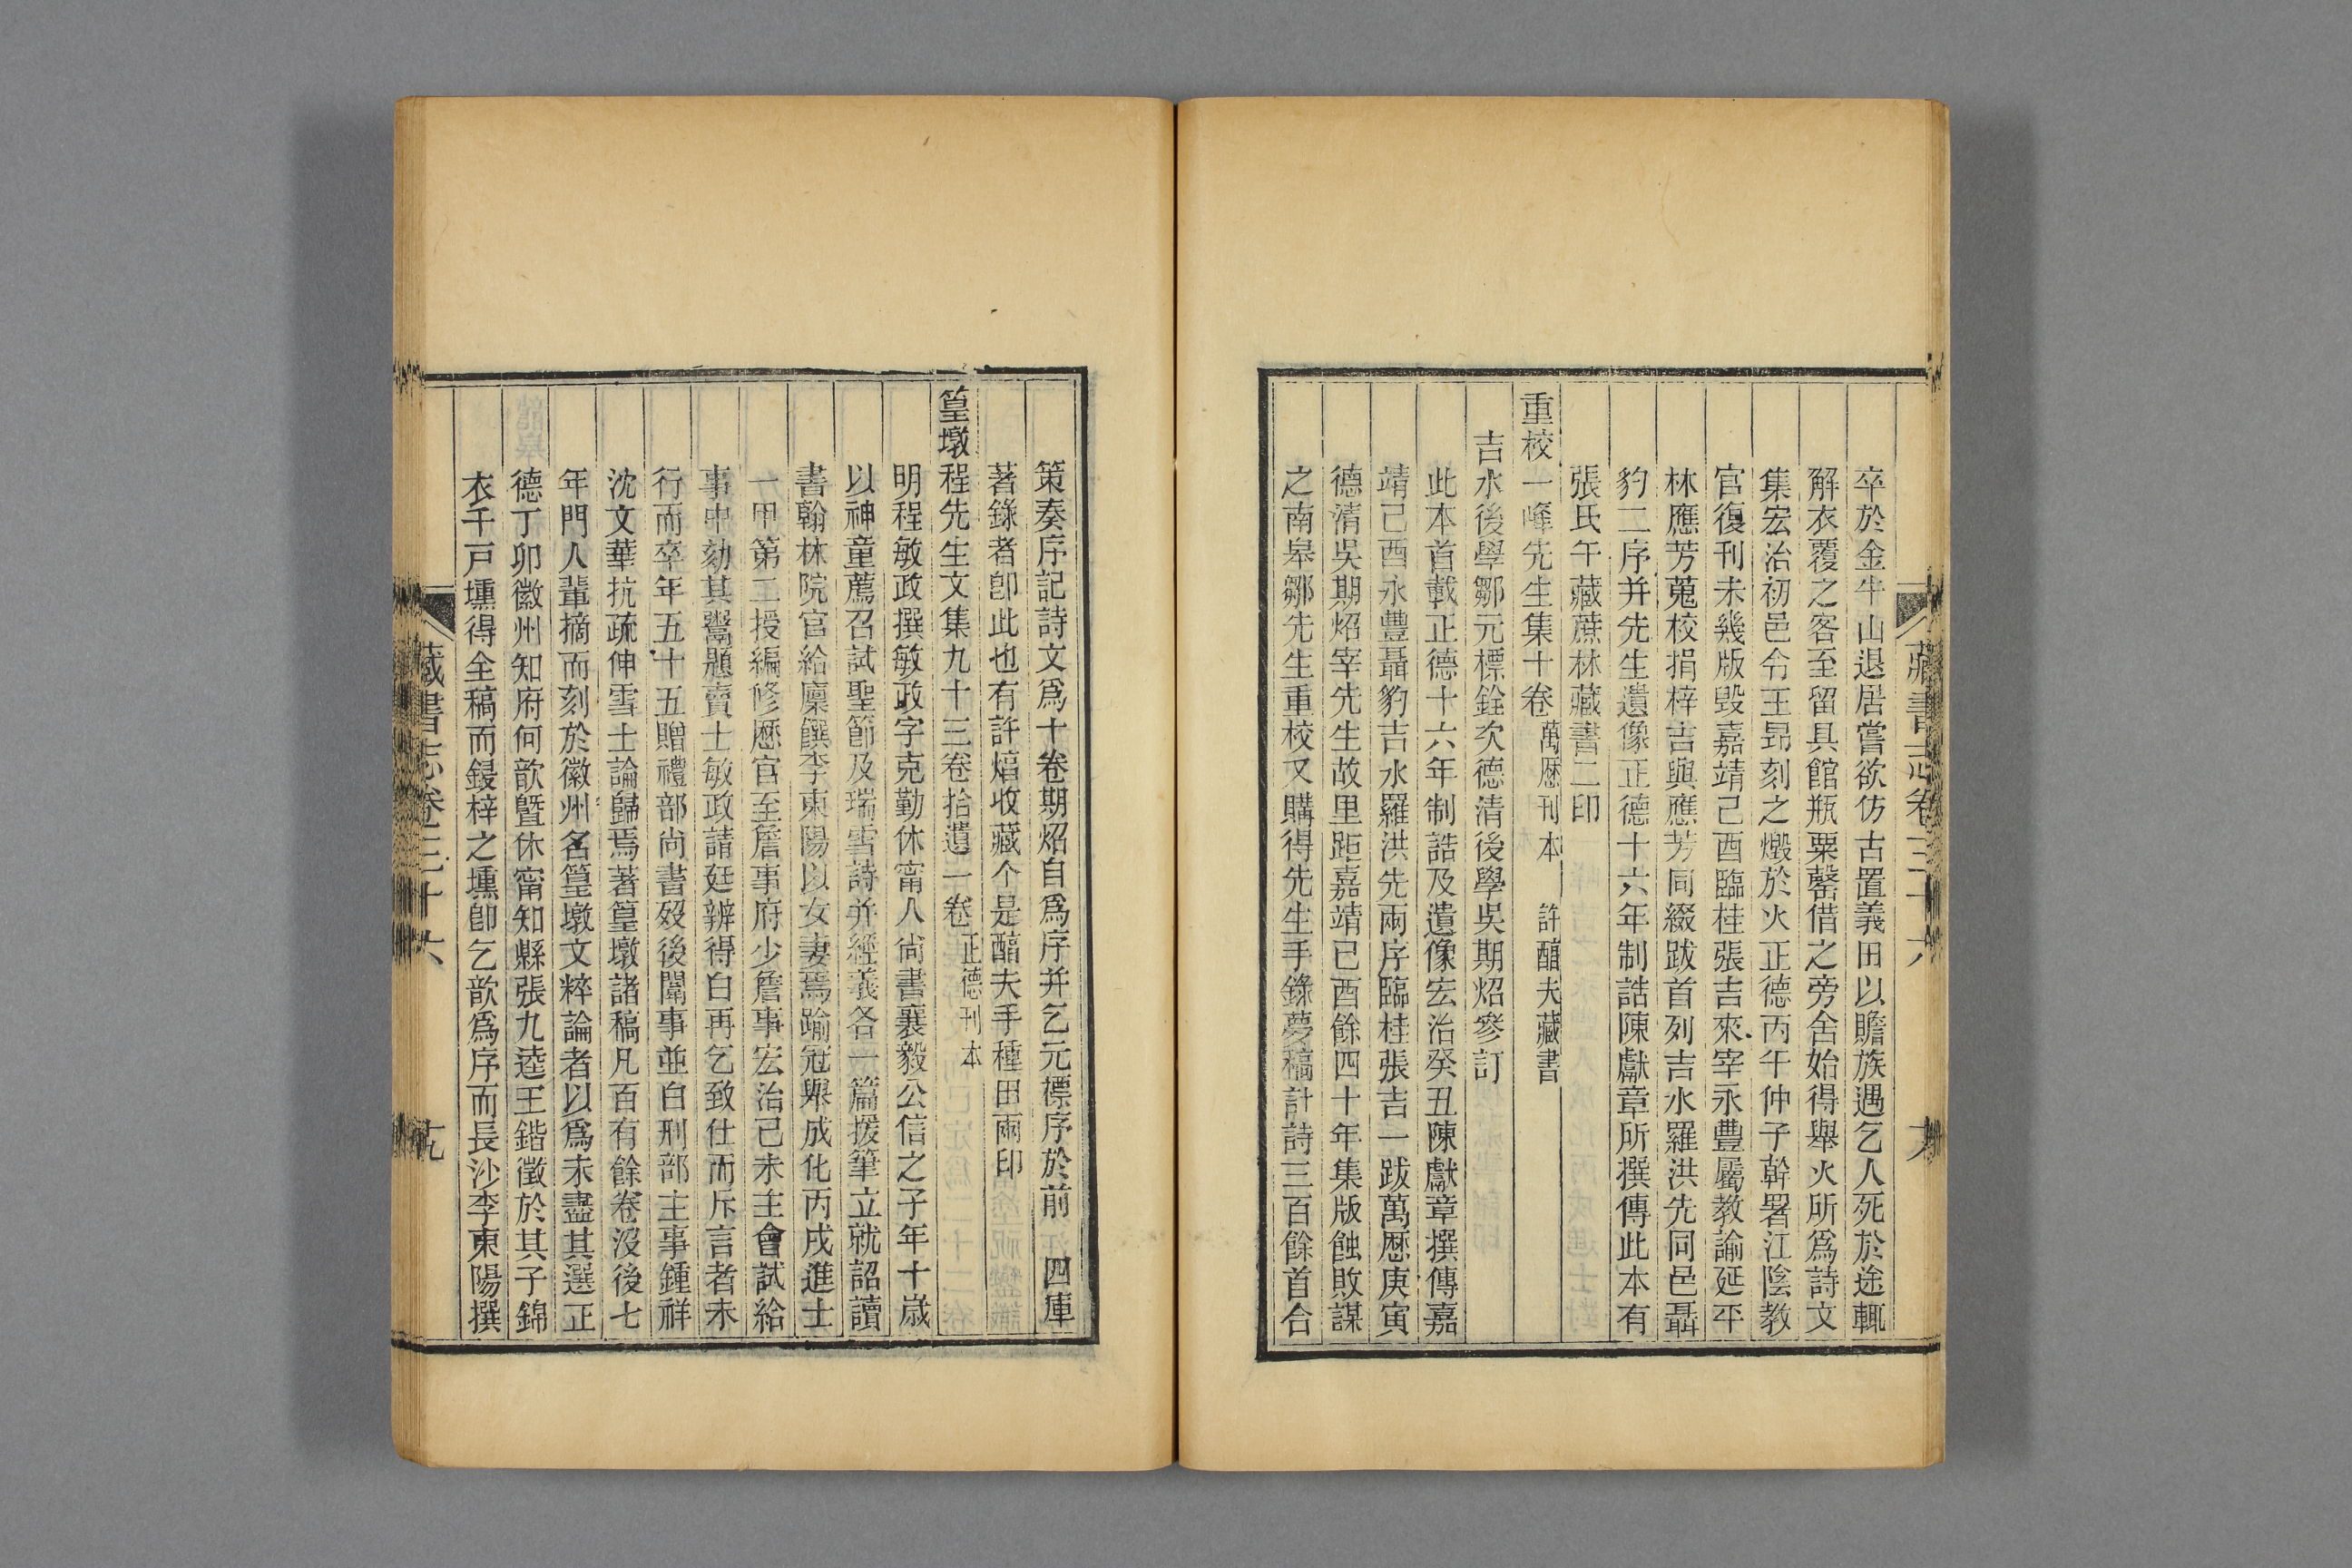 藏書志卷三十六
卒於金牛山退居嘗欲仿古置義田以贍族遇乞人死於途輒
解衣覆之客至留具館瓶粟罄借之旁舍始得舉火所爲詩文
集宏治初邑令王昻刻之燬於火正德丙午仲子幹署江陰教
官復刊未幾版毁嘉靖己酉臨桂張吉來宰永豐屬教諭延平
林應芳蒐校捐梓吉與應芳同綴跋首列吉水羅洪先同邑聶
豹二序并先生遺像正德十六年制誥陳獻章所撰傳此本有
張氏午藏蔗林藏書二印
重校一峰先生集十卷 萬歷刊本 許醕夫藏書
吉水後學鄒元標銓次德清後學吳期炤參訂
此本首載正德十六年制誥及遺像宏治癸丑陳獻章撰傳嘉
靖己酉永豐聶豹吉水羅洪先兩序臨桂張吉一跋萬歷庚寅
德清吳期炤宰先生故里距嘉靖已酉餘四十年集版蝕敗謀
之南皋鄒先生重校又購得先生手錄夢稿計詩三百餘首合
策奏序記詩文爲十卷期炤自爲序并乞元標序於前 四庫
著錄者卽此也有許焻收藏个是醕夫手種田兩印
篁墩程先生文集九十三卷拾遺一卷 正德刊本
明程敏政撰敏政字克勤休甯人尙書襄毅公信之子年十歲
以神童薦召試聖節及瑞雪詩并經義各一篇援筆立就詔讀
書翰林院官給廩饌李東陽以女妻焉踰冠舉成化丙戌進士
一甲第二授編修歷官至詹事府少詹事宏治己未主會試給
事中劾其鬻題賣士敏政請廷辨得白再乞致仕而斥言者未
行而卒年五十五贈禮部尙書歿後闈事並白刑部主事鍾祥
沈文華抗疏伸雪士論歸焉著篁墩諸稿凡百有餘卷沒後七
年門人輩摘而刻於徽州名篁墩文粹論者以爲未盡其選正
德丁卯徽州知府何歆曁休甯知縣張九逵王鍇徵於其子錦
衣千戸壎得全稿而鋟梓之壎卽乞歆爲序而長沙李東陽撰
藏書志卷三十六